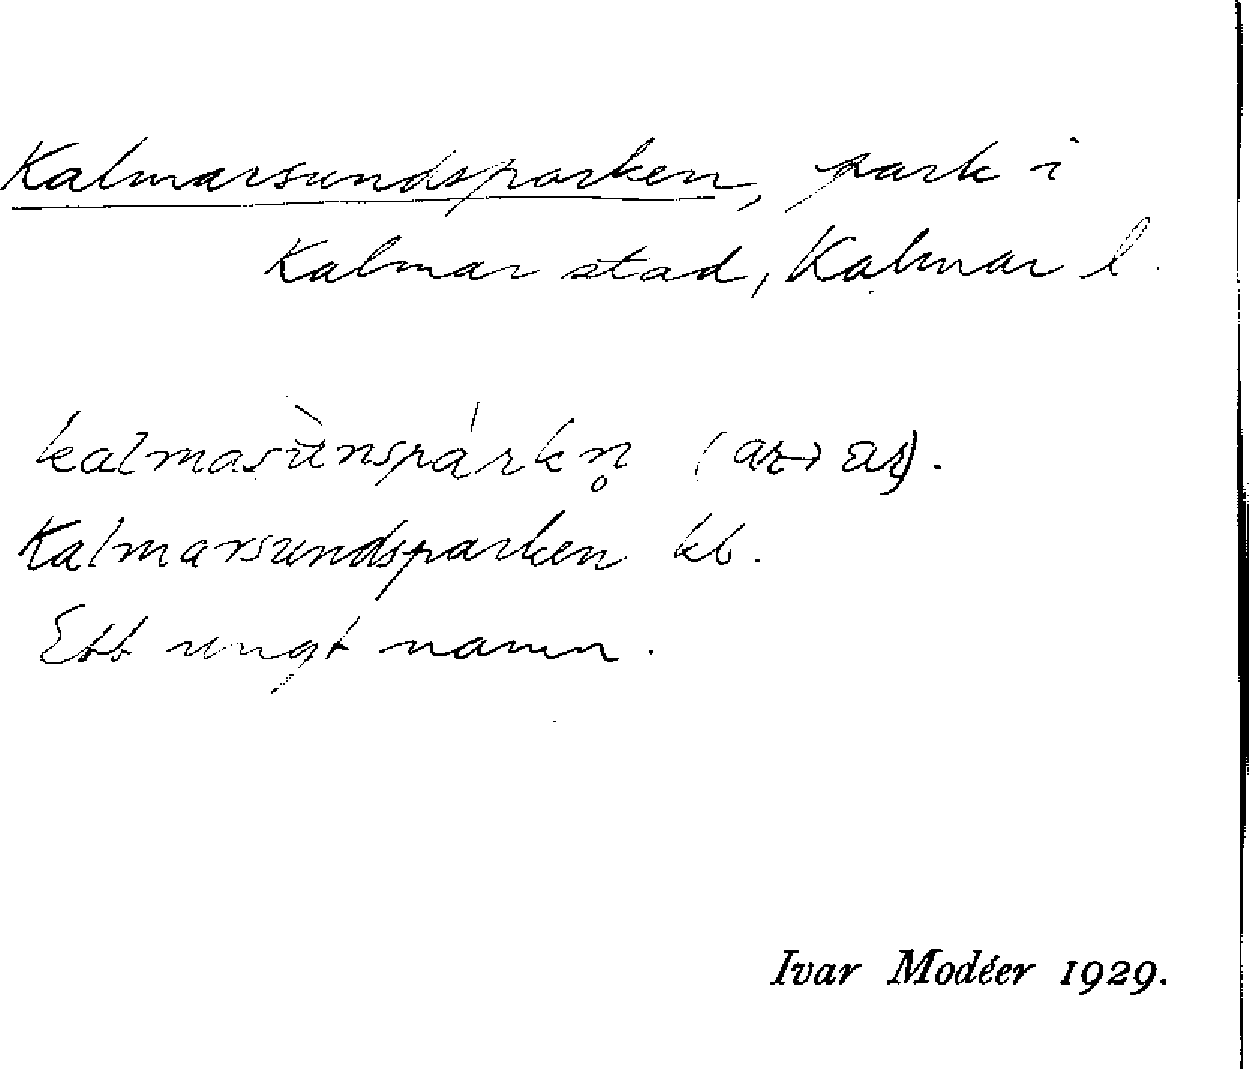 Kalmarsundsparken, park i
Kalmar stad, Kalmar l.
kalmasùnspárkn̥
Kalmarsundsparken kb.
Ett ungt namn.
Ivar Modéer 1929.